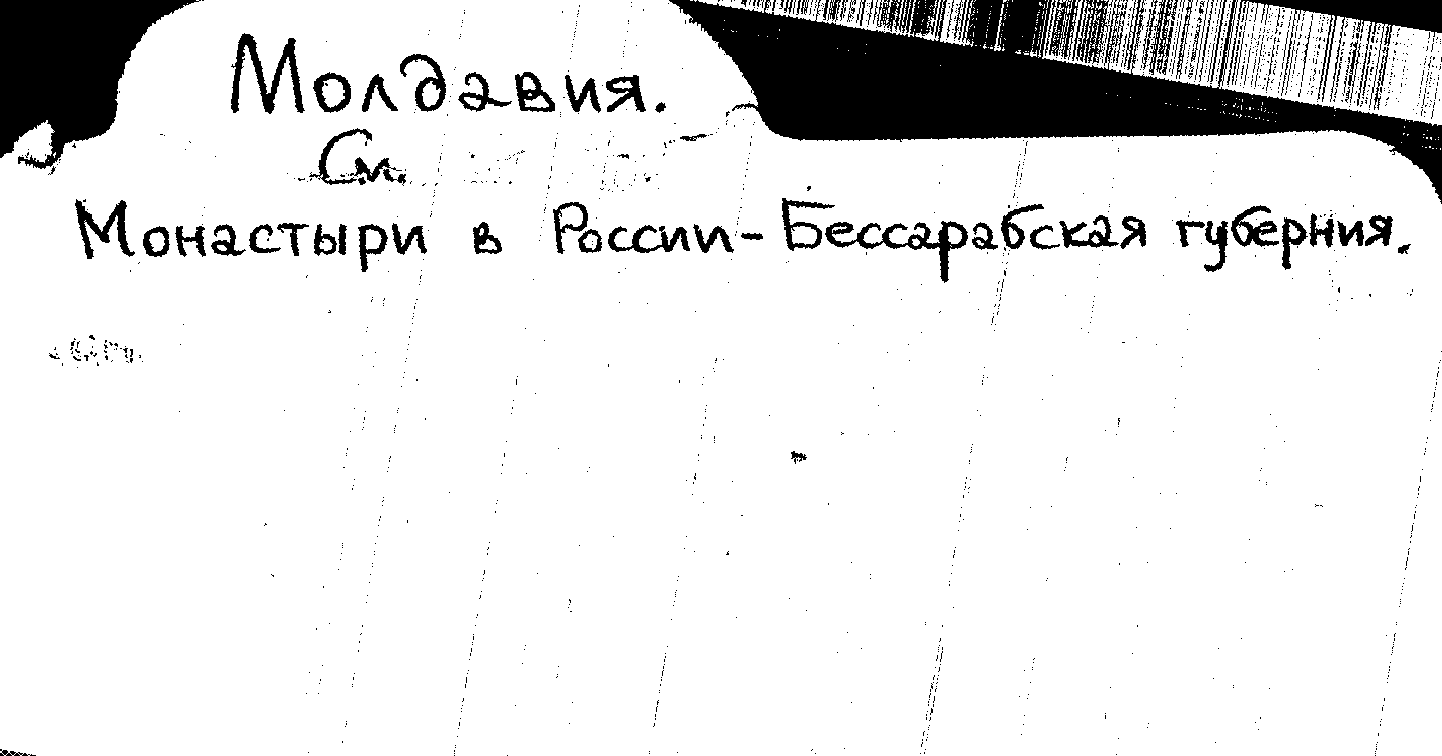 Молдавия.
См.
Монастыри в России - Бессарабская губерния.